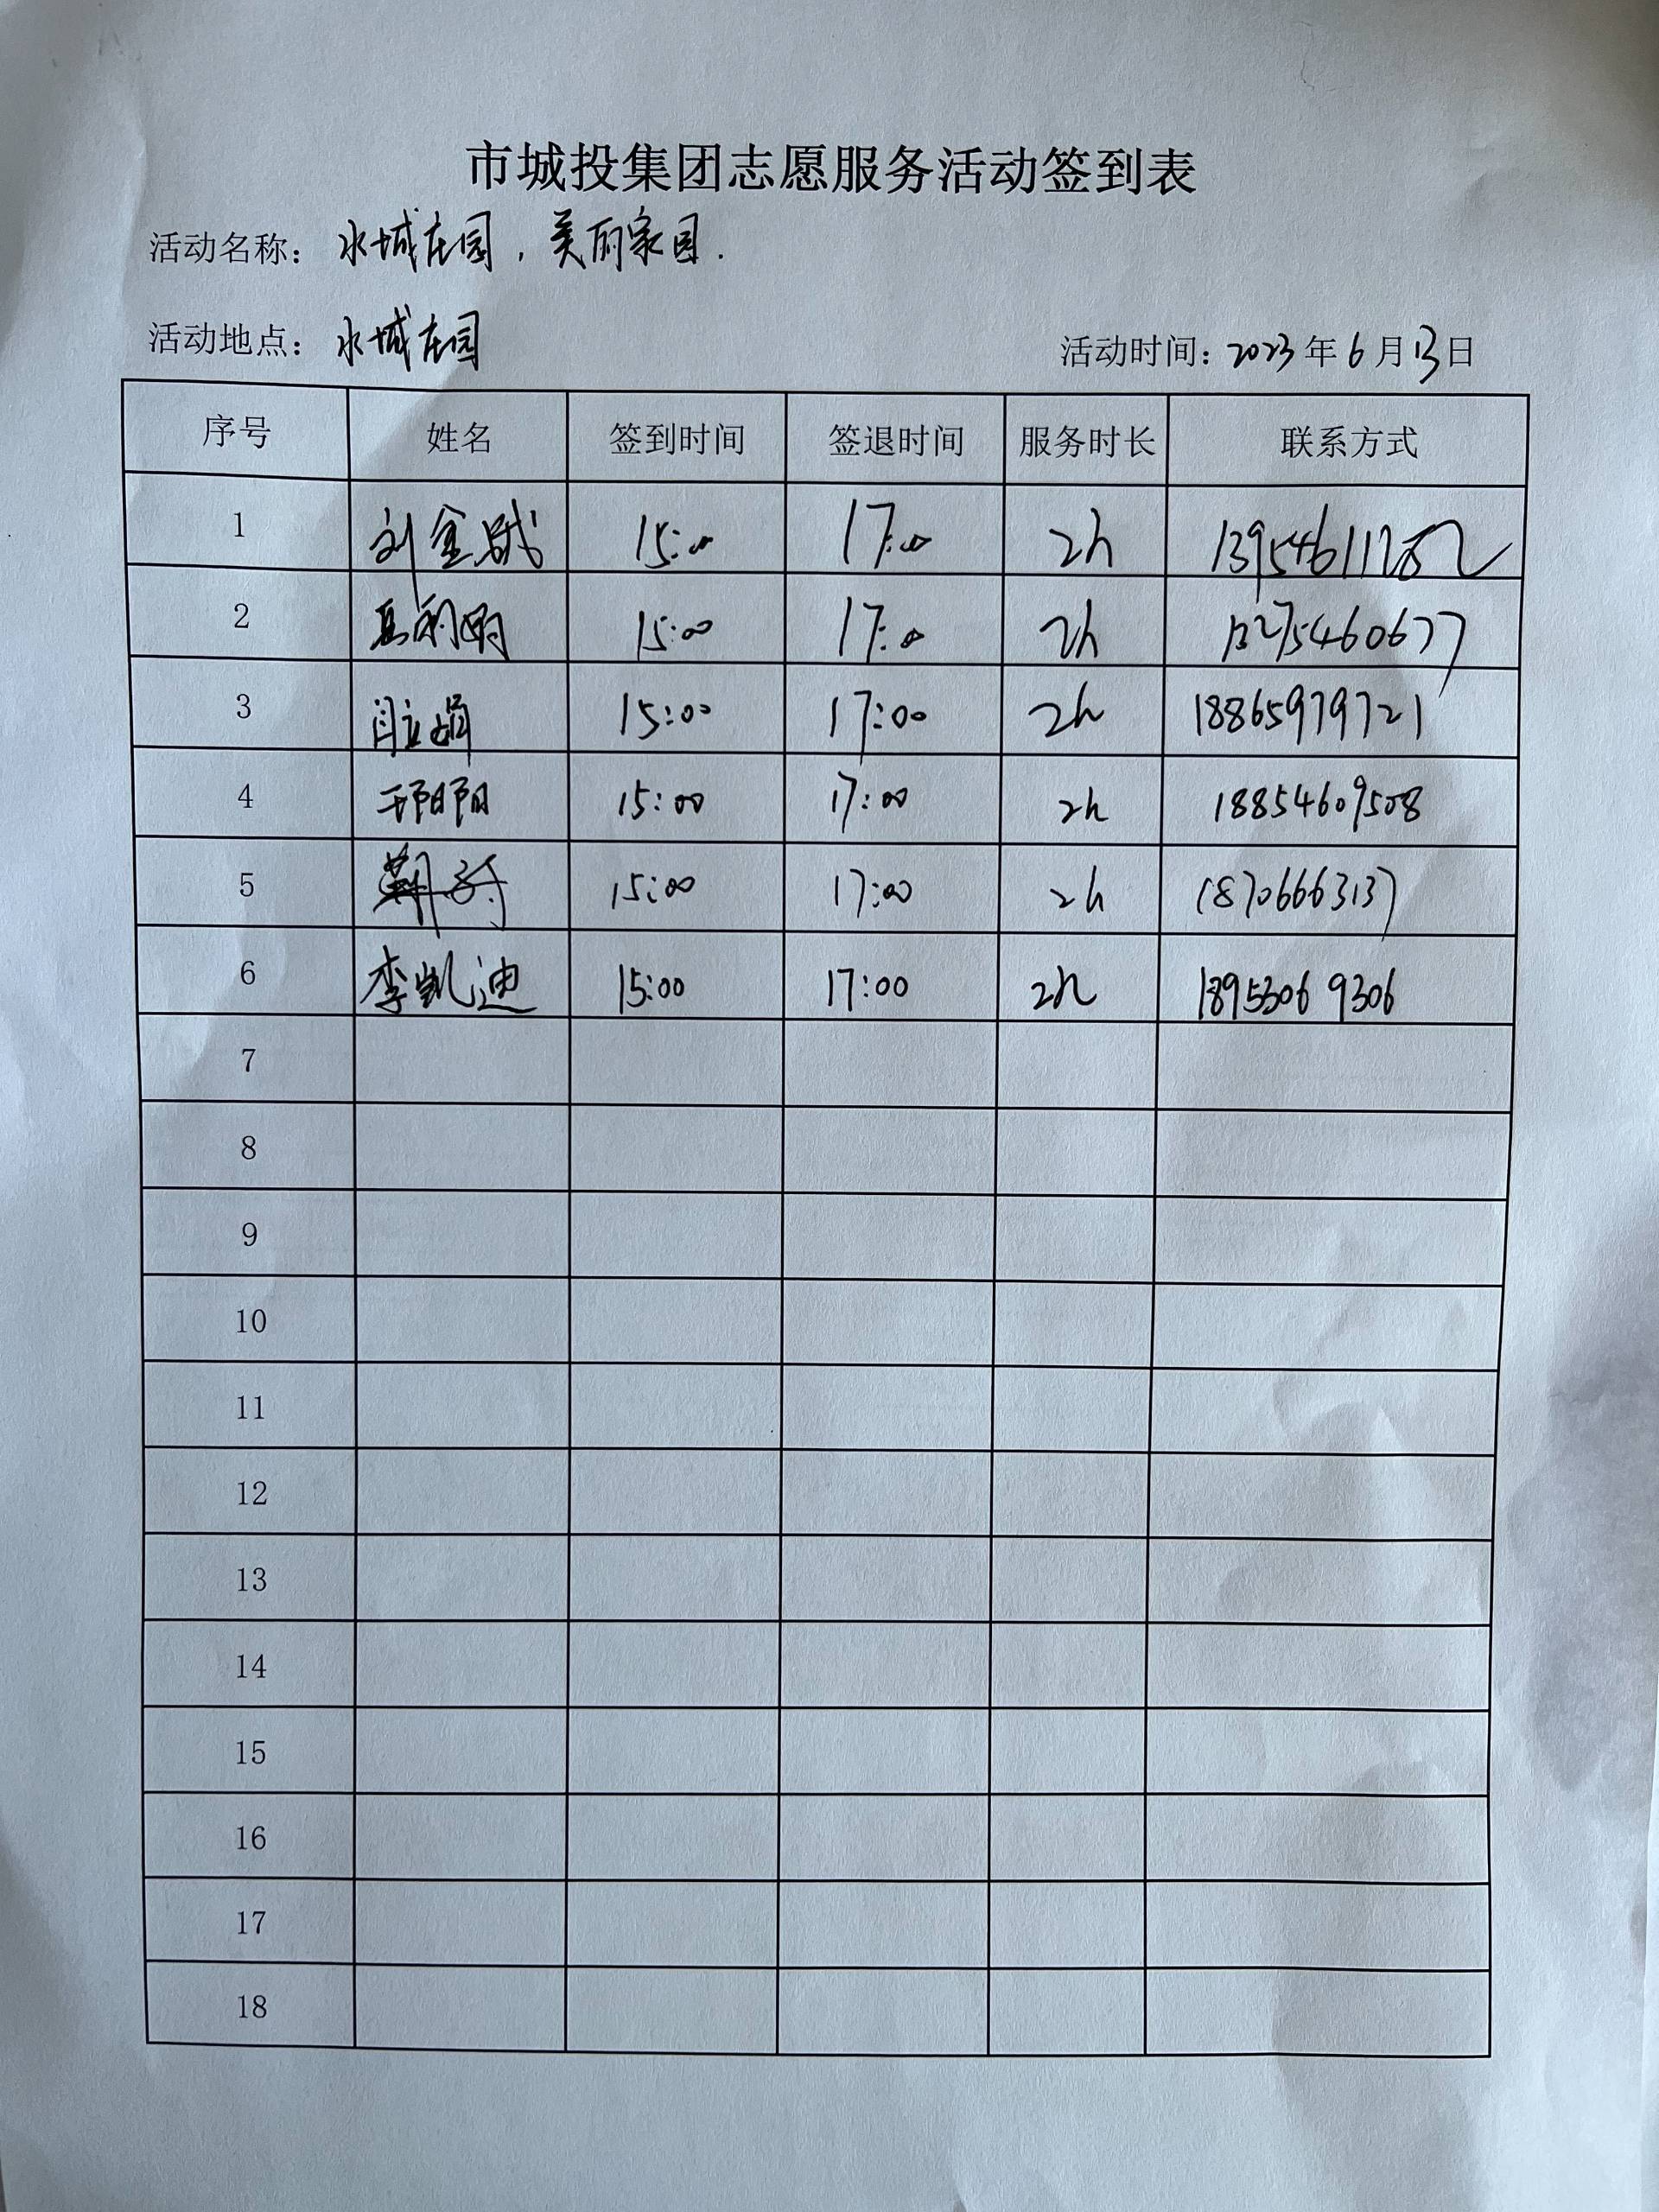 市城投集团志愿服务活动签到表
活动名称: 水城庄园,美丽家园.
活动地点: 水城庄园 活动时间: 2023年6月13日
序号 姓名 签到时间 签退时间 服务时长 联系方式
1 刘金 15:00 17:00 2h
2 15:00 17:00 2h
3 闫立娟 15:00 17:00 2h 18865979721
4 邢阳阳 15:00 17:00 2h 18854609508
5 15:00 17:00 2h 18706663137
6 李凯迪 15:00 17:00 2h 18953069306
7
8
9
10
11
12
13
14
15
16
17
18